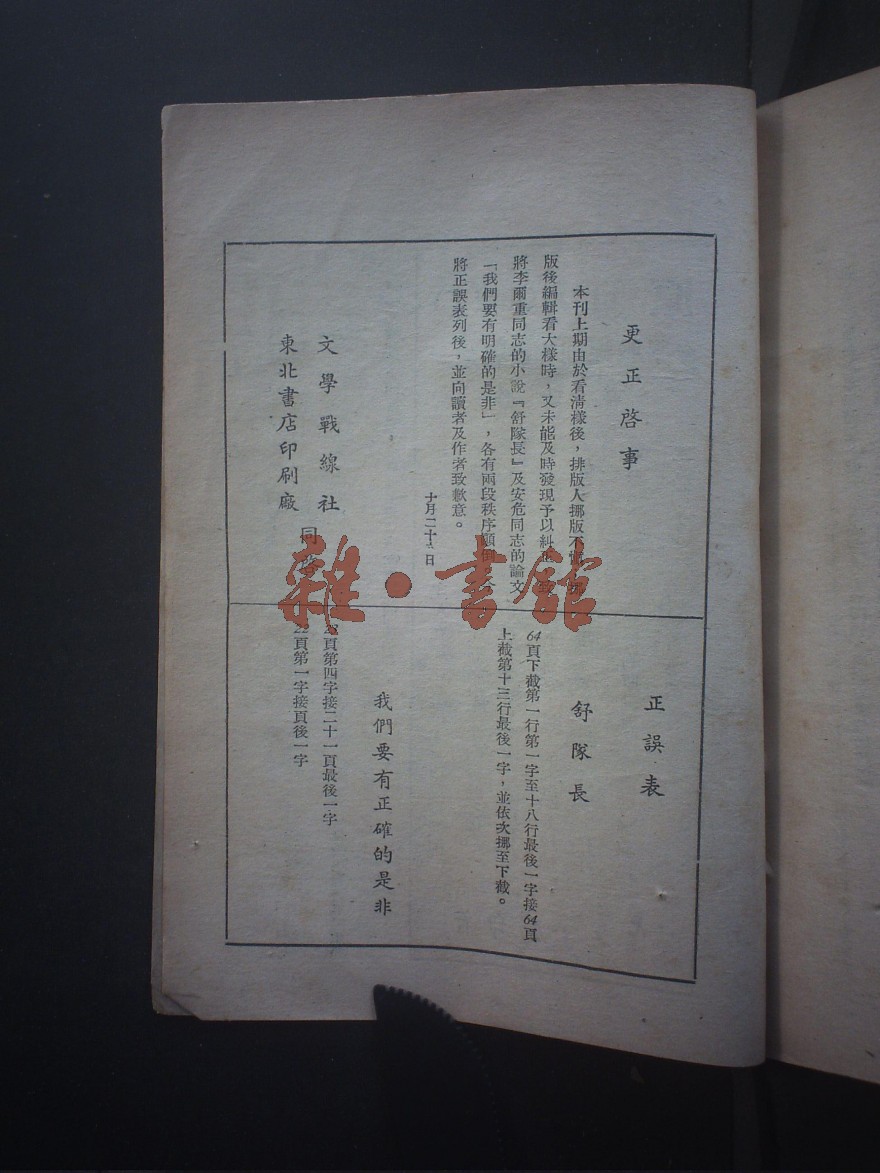 更正啓事
本刊上期由於看清樣後，排版人挪版不
版後編輯看大樣時，又未能及時發現予以糾
將李爾重同志的小說『舒隊長』及安危同志的論文
「我們要有明確的是非」，各有兩段秩序顛
將正誤表列後，並向讀者及作者致歉意。
十月二十 日
文學戰線社
東北書店印刷廠
同啓
正誤表
舒隊長
64頁下截第一行第一字至十八行最後一字接64頁
上截第十三行最後一字，並依次挪至下截。
我們要有正確的是非
頁第四字接二十一頁最後一字
22頁第一字接頁後一字
雜·書館